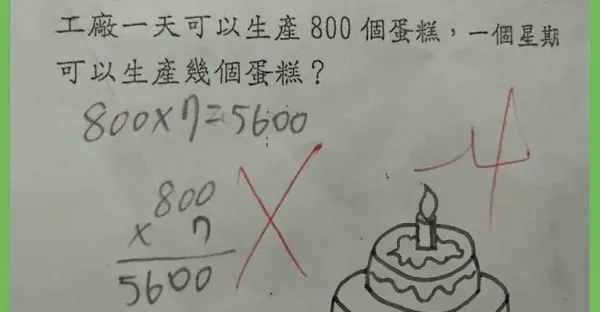 工廠一天可以生產 800 個蛋糕，一個星期
可以生產幾個蛋糕？
800×7=5600
-4
800
× 7
5600